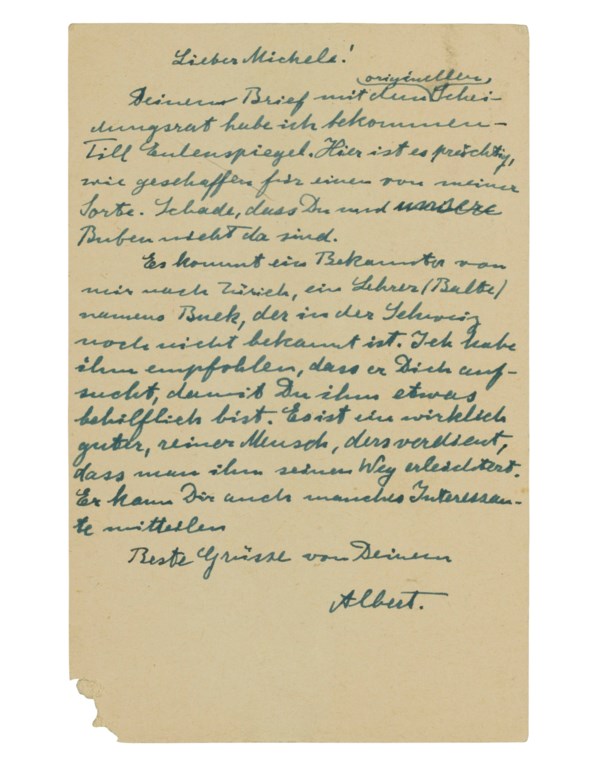 Lieber Michele!
originellen
Deinen Brief mit dem Schei-
dungsrat habe ich bekommen –
Till Eulenspiegel. Hier ist es prächtig,
wie geschaffen für einen von meiner
Sorte. Schade, dass Du und unsere
Buben nicht da sind.
Es kommt ein Bekannter von
mir nach Zürich, ein Lehrer (Balte)
namens Buek, der in der Schweiz
noch nicht bekannt ist. Ich habe
ihm empfohlen, dass er Dich auf-
sucht, damit Du ihm etwas
behilflich bist. Es ist ein wirklich
guter, reiner Mensch, ders verdient,
dass man ihm seinen Weg erleichtert.
Er kann Dir auch manches Interessan-
te mitteilen
Beste Grüsse von Deinem
Albert.